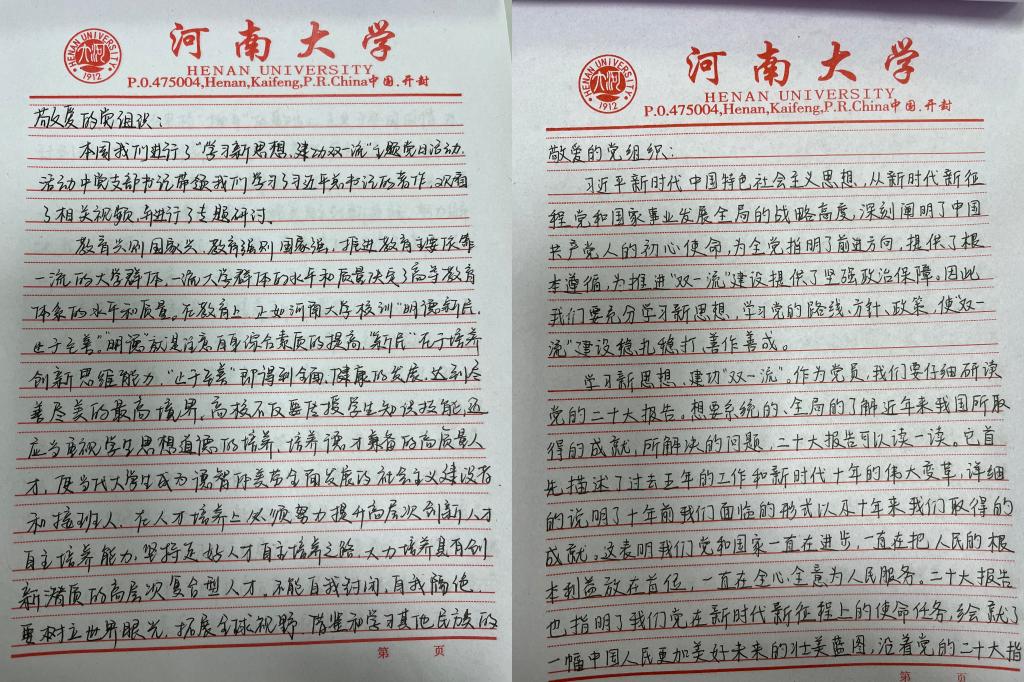 河南大学
HENAN UNIVERSITY
1912
HENAN UNIVERSITY
P.O.475004,Henan,Kaifeng,P.R.China中国.开封
敬爱的党组织：
本周我们进行了“学习新思想，建功双一流”主题党日活动，
活动中党支部书记带领我们学习了习近平总书记的著作，观看
了相关视频，并进行了专题研讨。
教育兴则国家兴，教育强则国家强，推进教育主要依靠
一流的大学群体，一流大学群体的水平和质量决定了高等教育
体系的水平和质量。在教育上，正如河南大学校训“明德新民，
止于至善”。“明德”就是注意自身综合素质的提高，“新民”在于培养
创新思维能力，“止于至善”即得到全面、健康的发展，达到尽
善尽美的最高境界。高校不仅要传授学生知识技能，还
应当重视学生思想道德的培养，培养德才兼备的高质量人
才，使当代大学生成为德智体美劳全面发展的社会主义建设者
和接班人。在人才培养上必须努力提升高层次创新人才
自主培养能力，坚持走好人才自主培养之路，大力培养具有创
新潜质的高层次复合型人才。不能自我封闭，自我隔绝，
要树立世界眼光，拓展全球视野，借鉴和学习其他民族的
第 页
河南大学
HENAN UNIVERSITY
1912
HENAN UNIVERSITY
P.O.475004,Henan,Kaifeng,P.R.China中国.开封
敬爱的党组织：
习近平新时代中国特色社会主义思想，从新时代新征
程党和国家事业发展全局的战略高度，深刻阐明了中国
共产党人的初心使命，为全党指明了前进方向，提供了根
本遵循，为推进“双一流”建设提供了坚强政治保障。因此
我们要充分学习新思想，学习党的路线、方针、政策，使“双一
流”建设稳扎稳打，善作善成。
学习新思想，建功“双一流”。作为党员，我们要仔细研读
党的二十大报告。想要系统的、全局的了解近年来我国所取
得的成就，所解决的问题，二十大报告可以读一读。它首
先描述了过去五年的工作和新时代十年的伟大变革，详细
的说明了十年前我们面临的形式以及十年来我们取得的
成就。这表明我们党和国家一直在进步，一直在把人民的根
本利益放在首位，一直在全心全意为人民服务。二十大报告
也指明了我们党在新时代新征程上的使命任务，绘就了
一幅中国人民更加美好未来的壮美蓝图，沿着党的二十大指
第 页